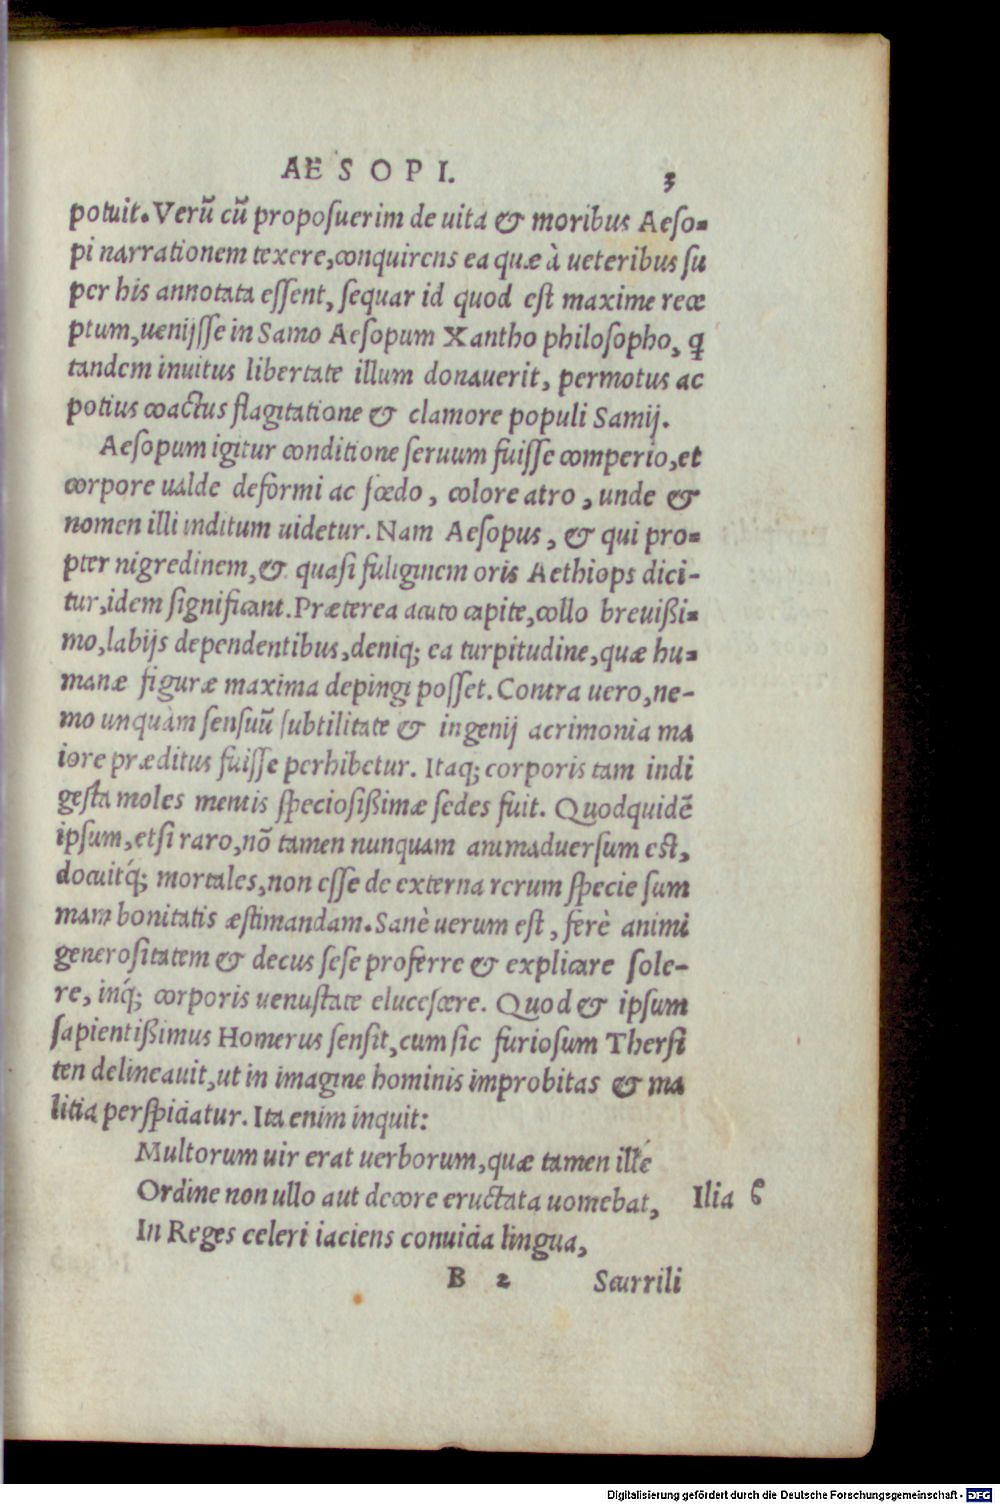 AESOPI. 3
potuit. Verũ cũ proposuerim de uita & moribus Aeso=
pi narrationem texere, conquirens ea quæ à ueteribus su
per his annotata essent, sequar id quod est maxime rece
ptum, uenijsse in Samo Aesopum Xantho philosopho, ꝗ
tandem inuitus libertate illum donauerit, permotus ac
potius coactus flagitatione & clamore populi Samij.
Aesopum igitur conditione seruum fuisse comperio, et
corpore ualde deformi ac fœdo, colore atro, unde &
nomen illi inditum uidetur. Nam Aesopus, & qui pro=
pter nigredinem, & quasi fuliginem oris Aethiops dici-
tur, idem significant. Præterea acuto capite, collo breuißi=
mo, labijs dependentibus, deniq; ea turpitudine, quæ hu=
manæ figuræ maxima depingi posset. Contra uero, ne-
mo unquàm sensuũ subtilitate & ingenij acrimonia ma
iore præditus fuisse perhibetur. Itaq; corporis tam indi
gesta moles mentis speciosißimæ sedes fuit. Quodquidẽ
ipsum, etsi raro, nõ tamen nunquam animaduersum est,
docuitq́; mortales, non esse de externa rerum specie sum
mam bonitatis æstimandam. Sanè uerum est, ferè animi
generositatem & decus sese proferre & explicare sole-
re, inq́; corporis uenustate elucescere. Quod & ipsum
sapientißimus Homerus sensit, cum sic furiosum Thersi
ten delineauit, ut in imagine hominis improbitas & ma
litia perspiciatur. Ita enim inquit:
Multorum uir erat uerborum, quæ tamen ille
Ordine non ullo aut decore eructata uomebat, Ilia 6
In Reges celeri iaciens conuicia lingua,
B 2 Scurrili
Digitalisierung gefördert durch die Deutsche Forschungsgemeinschaft - DFG